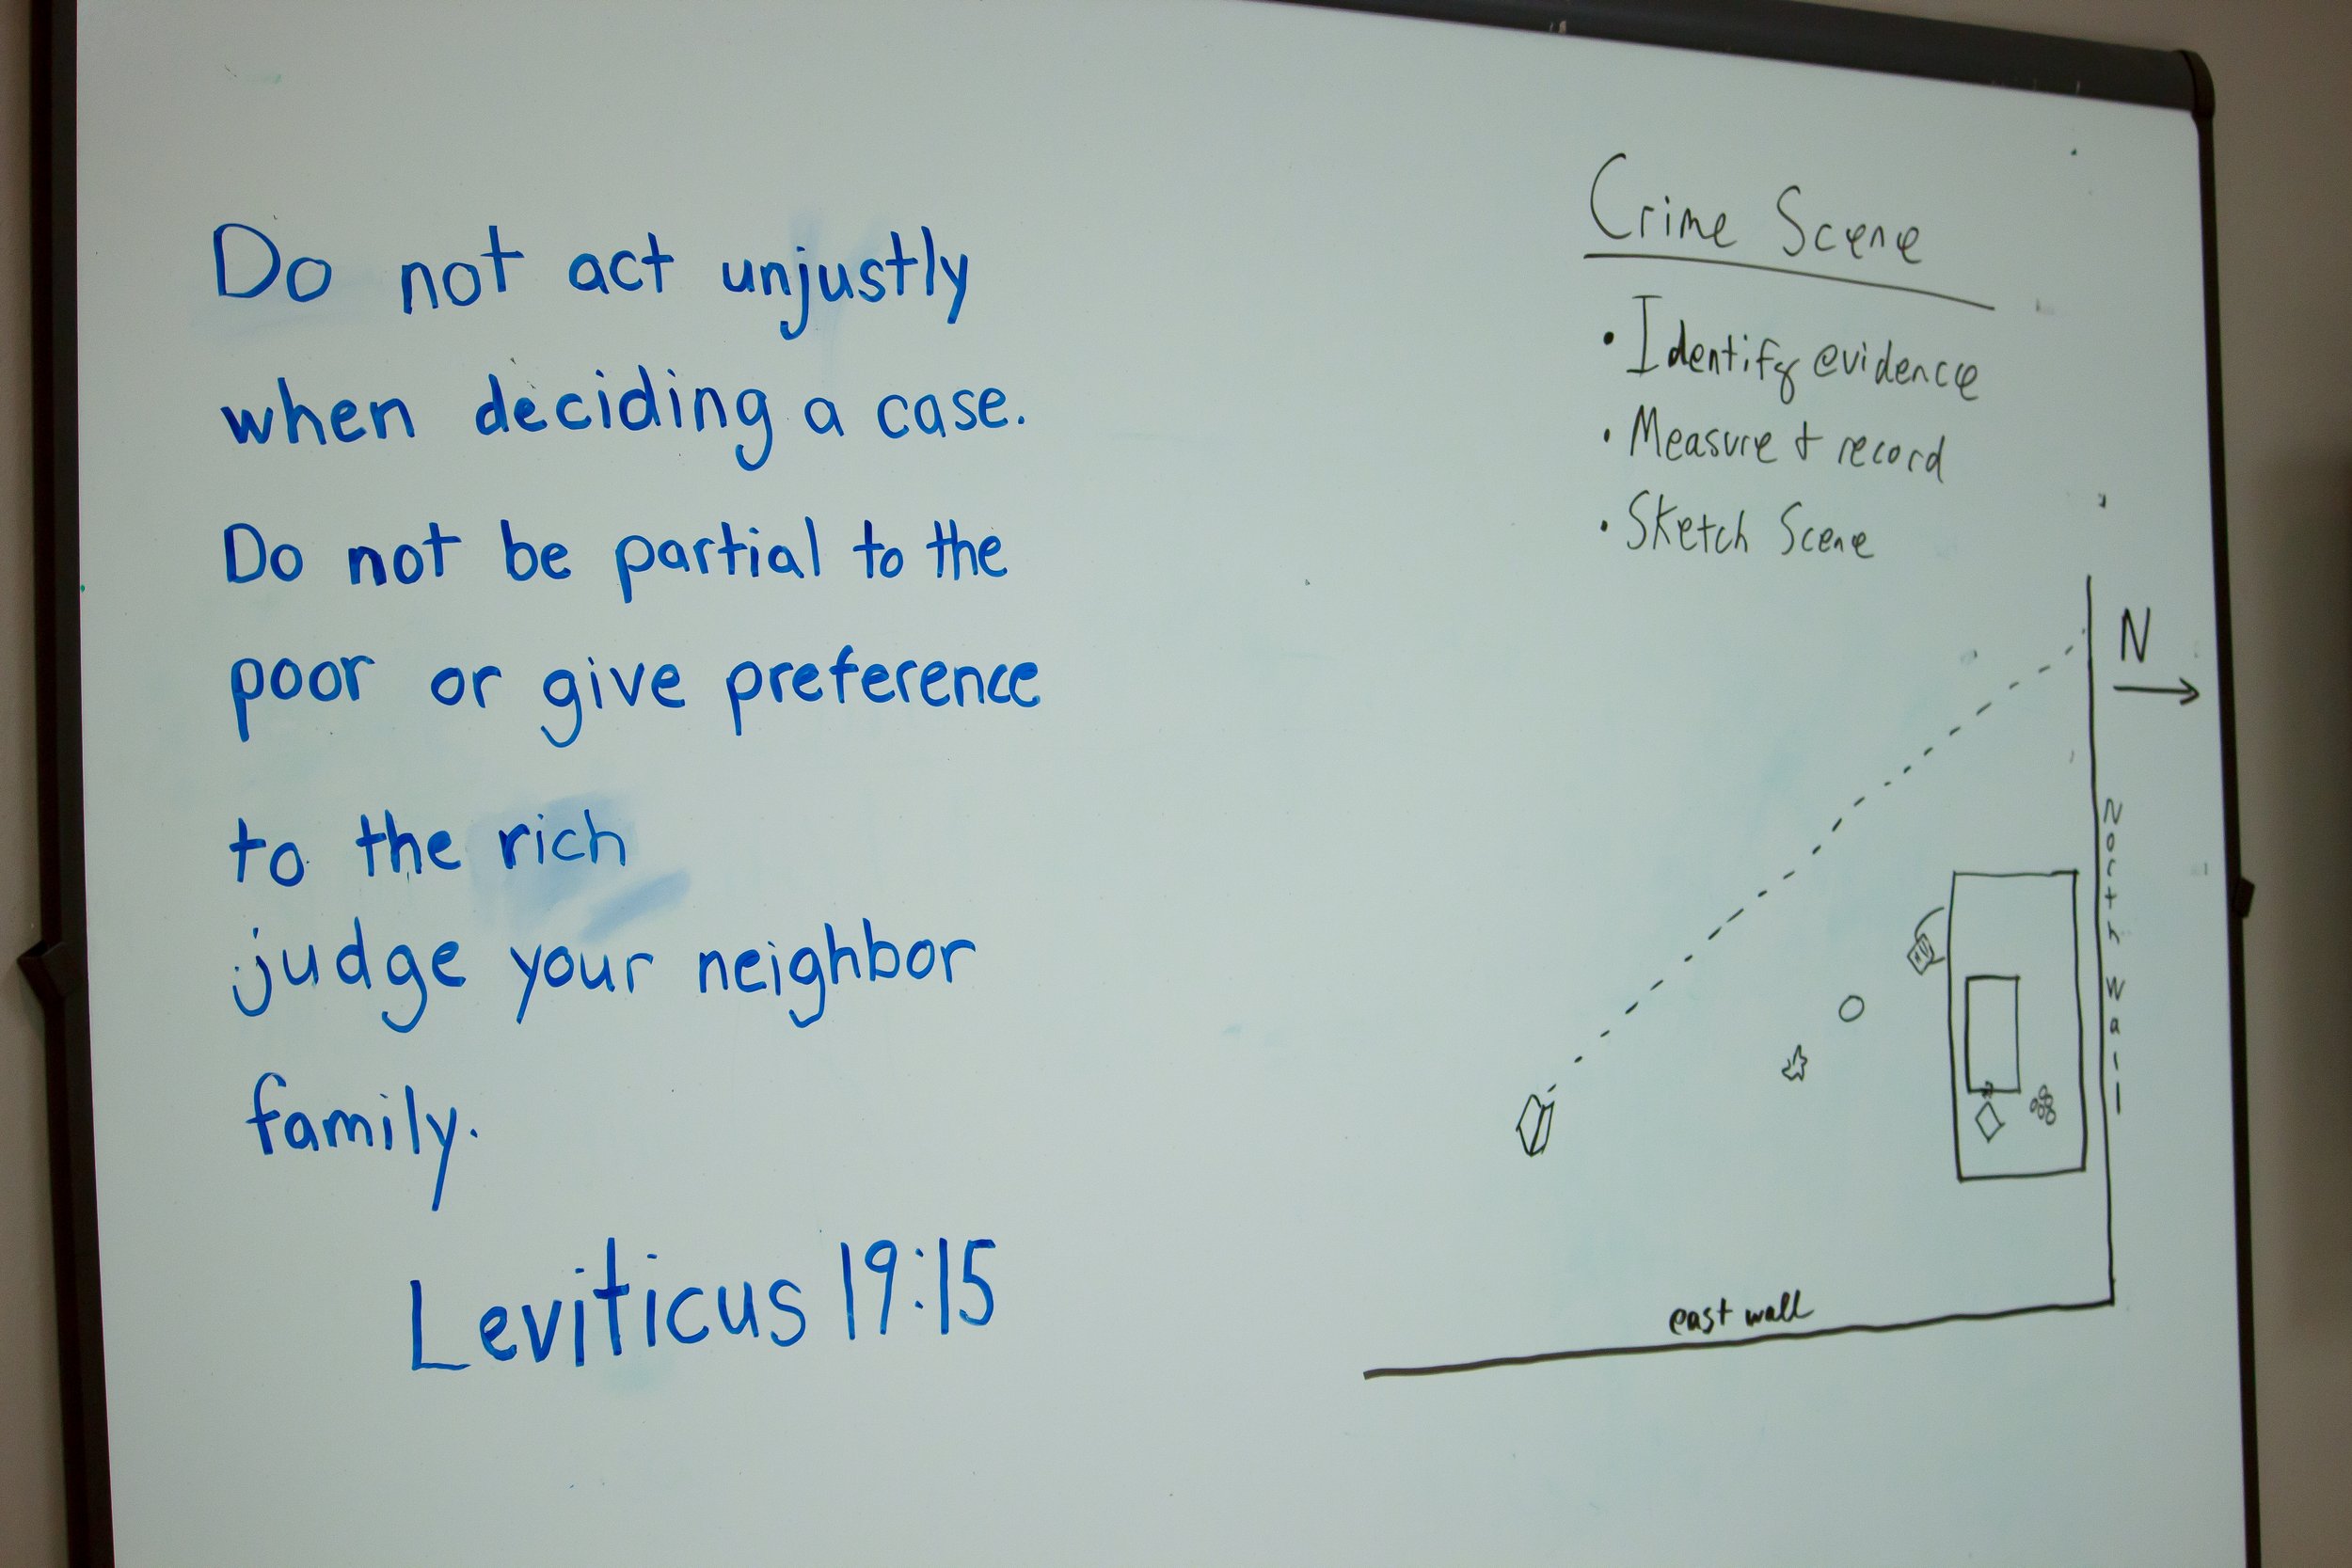 Do not act unjustly
when deciding a case.
Do not be partial to the
poor or give preference
to the rich
judge your neighbor
family.
Leviticus 19:15
Crime Scene
• Identify evidence
• Measure + record
• Sketch Scene
N
North Wall
east wall